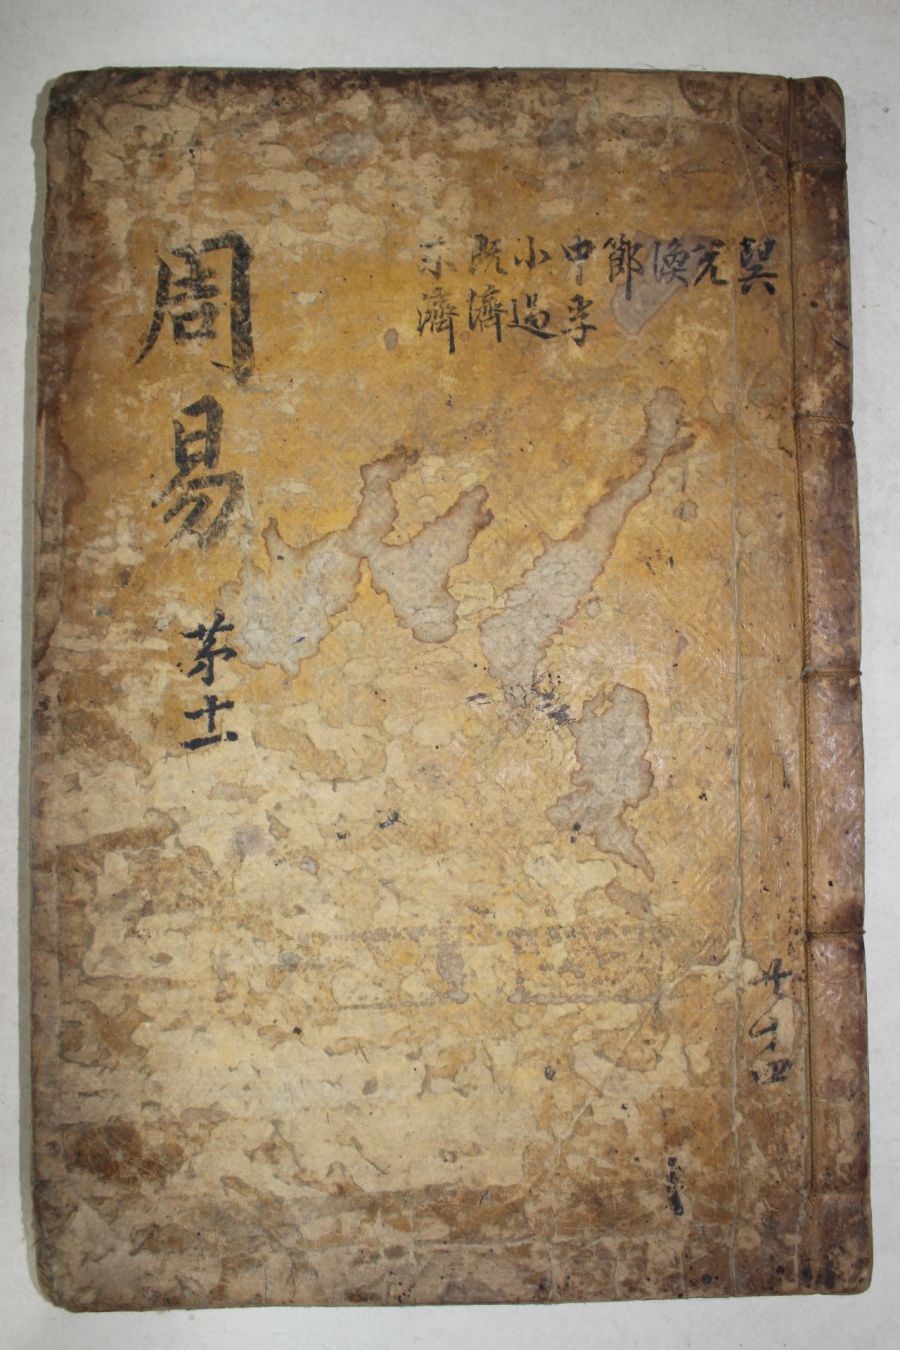 巽
兌
渙
節
中孚
小過
既濟
未濟
周易
苐十一
共十四